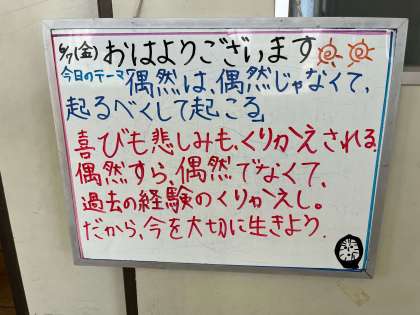 6/7(金) おはようございます
今日のテーマ 偶然は、偶然じゃなくて、
起るべくして起こる」
喜びも悲しみも、くりかえされる。
偶然すら、偶然でなくて、
過去の経験のくりかえし。
だから、今を大切に生きよう。